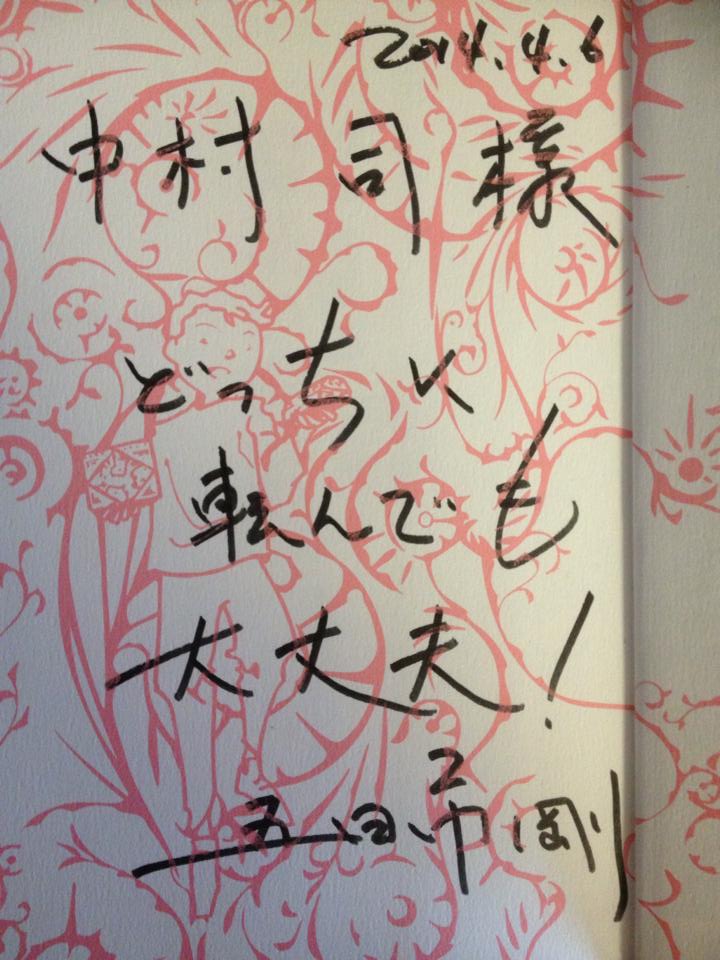 2014.4.6
中村 司 様
どっちに
転んでも
大丈夫!
五日市 剛